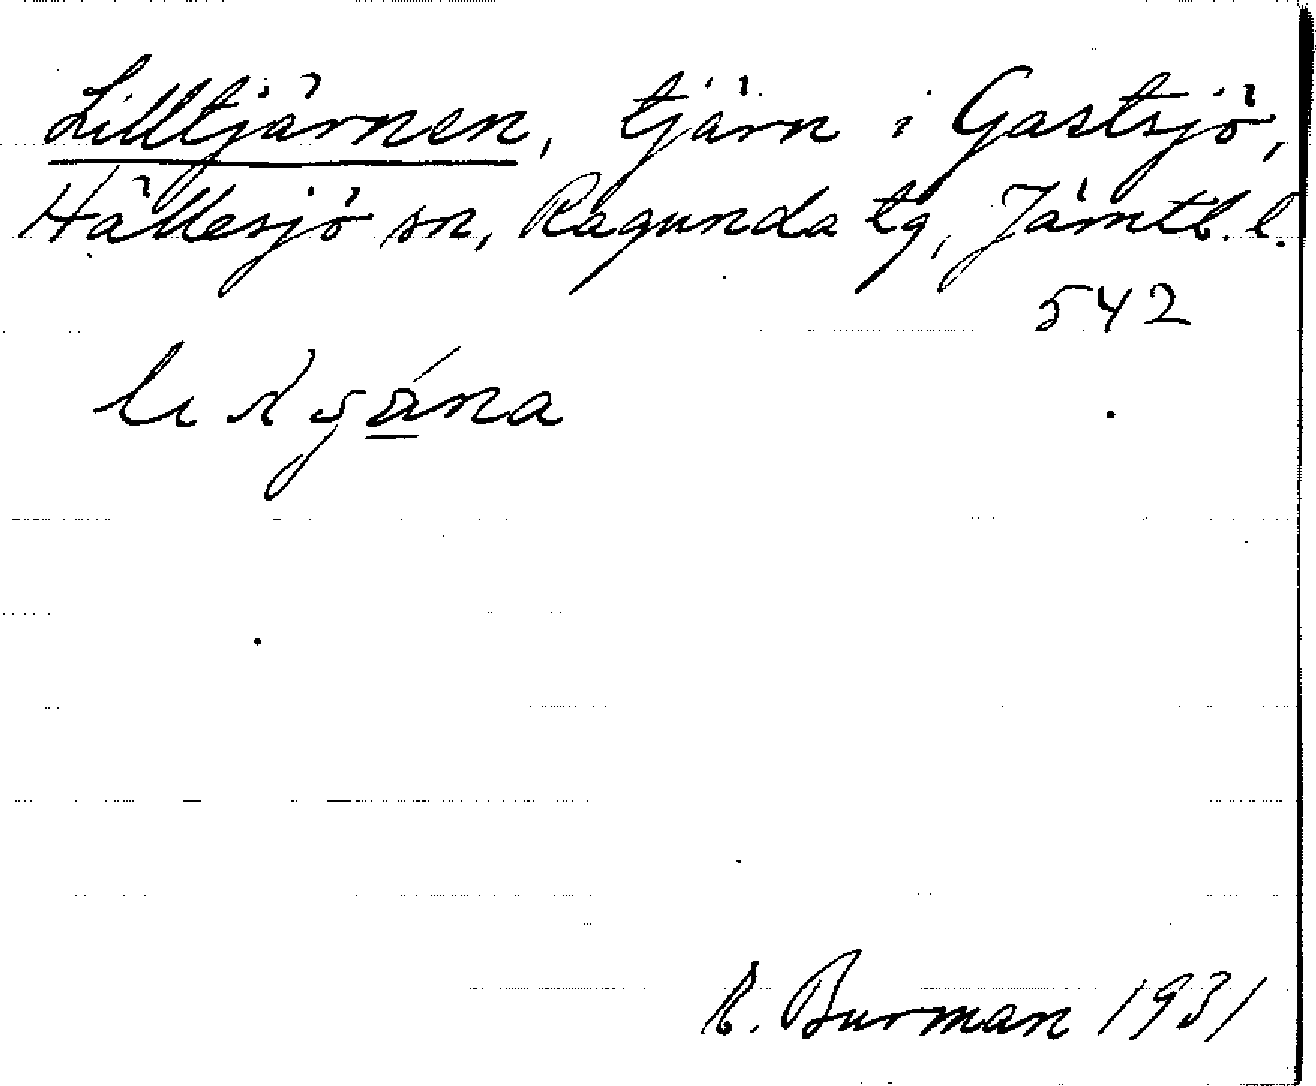 Lilltjärnen, tjärn i Gastsjö,
Hällesjö sn, Ragunda tg, Jämtl. l.
542
R. Burman 1931